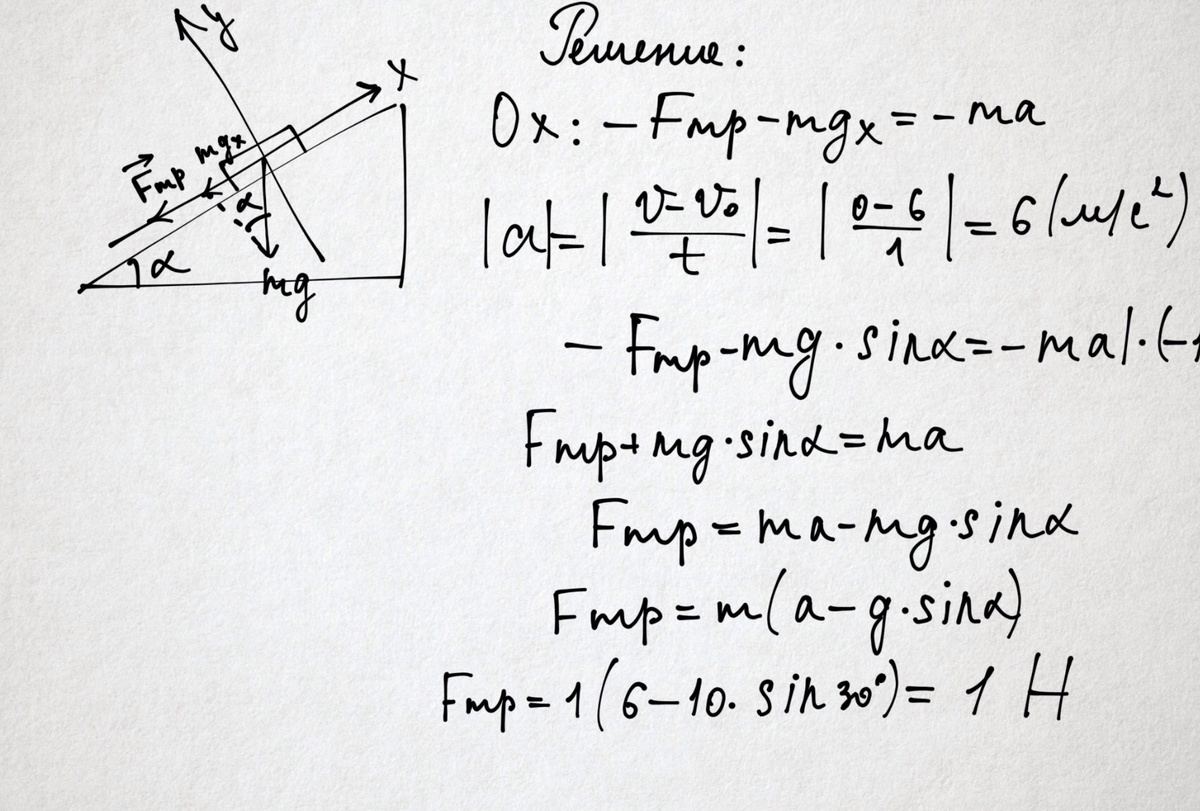 y
x
Fтр mgx
α
α
mg
Решение:
Ox: -Fтр-mgx=-ma
|a|=|v-v₀/t|=|0-6/1|=6(м/с²)
-Fтр-mg·sinα=-ma|·(-1
Fтр+mg·sinα=ma
Fтр=ma-mg·sinα
Fтр=m(a-g·sinα)
Fтр=1(6-10·sin30°)=1 Н